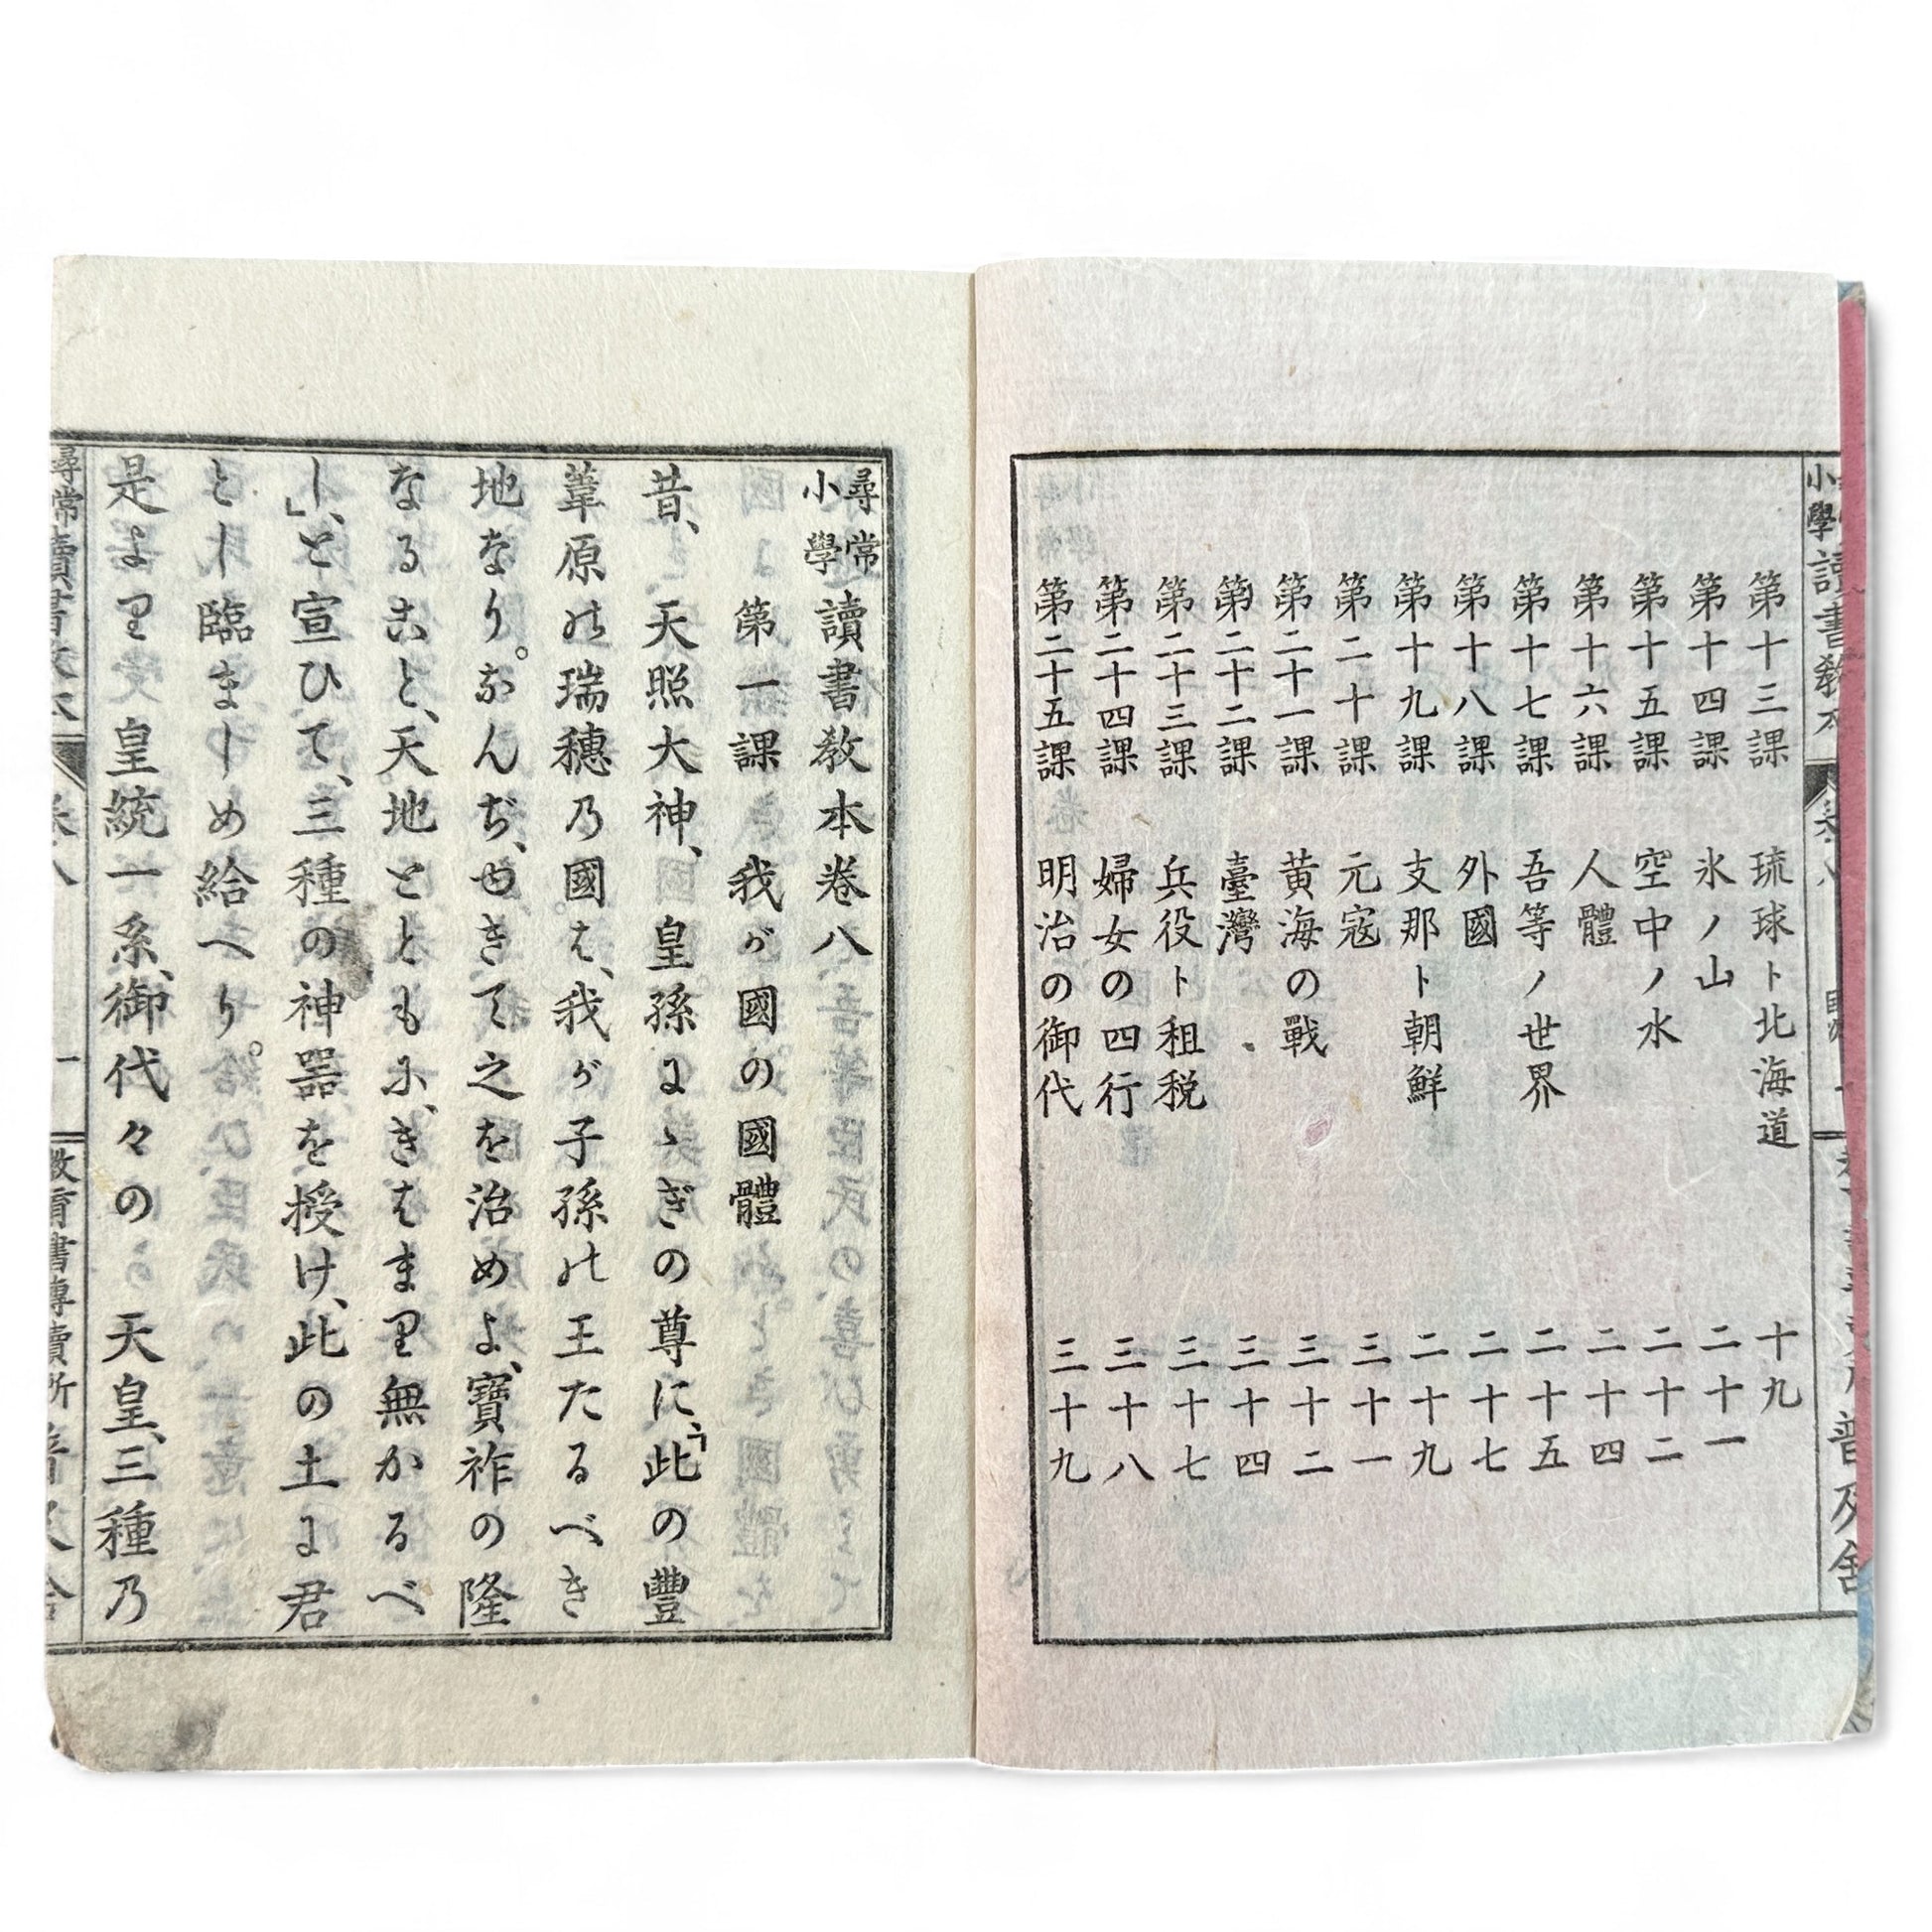 第十三課 琉球ト北海道 十九
第十四課 氷ノ山 二十一
第十五課 空中ノ水 二十二
第十六課 人體 二十四
第十七課 吾等ノ世界 二十五
第十八課 外國 二十七
第十九課 支那ト朝鮮 二十九
第二十課 元寇 三十一
第二十一課 黄海の戰 三十二
第二十二課 臺灣 三十四
第二十三課 兵役ト租税 三十七
第二十四課 婦女の四行 三十八
第二十五課 明治の御代 三十九
尋常小學讀書教本卷八
第一課 我が國の國體
昔、天照大神、皇孫に、ぎの尊に、「此の豐
葦原の瑞穗乃國は、我が子孫の王たるべき
地なり。なんぢ、ゆきて之を治めよ、寶祚の隆
なること、天地とともに、きはまり無かるべ
し」、と宣ひて、三種の神器を授け、此の土に君
とし臨ましめ給へり。
是より皇統一系、御代々の天皇、三種乃